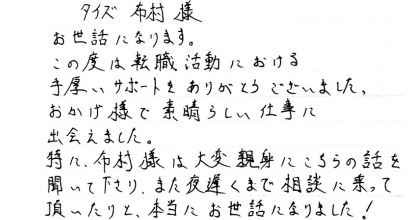 タイズ 布村 様
お世話になります。
この度は転職活動における
手厚いサポートをありがとうございました。
おかげ様で素晴らしい仕事に
出会えました。
特に、布村様は大変親身にこちらの話を
聞いて下さり、また夜遅くまで相談に乗って
頂いたりと、本当にお世話になりました!